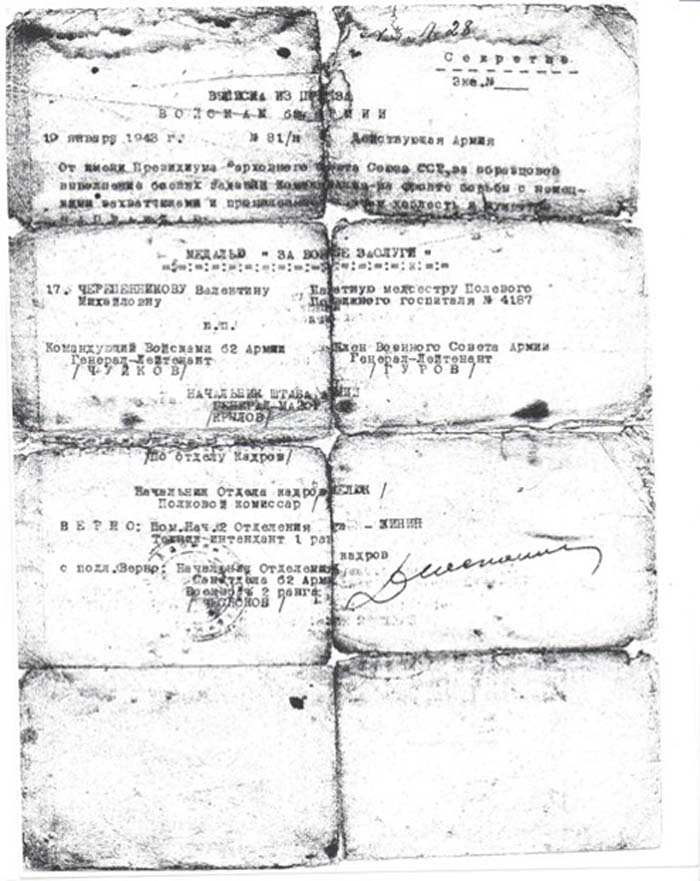 Секретно
Экз.№
ВЫПИСКА ИЗ
ВОЙСКАМ 62 АРМИИ
19 января 1943 г. № 81/н Действующая Армия
От имени Президиума Верховного Совета Союза ССР, за образцовое
выполнение боевых заданий Командования на фронте борьбы с немец-
кими захватчиками и доблесть и
МЕДАЛЬЮ " ЗА БОЕВЫЕ ЗАСЛУГИ "
17. ЧЕРЕПЕННИКОВУ Валентину Палатную медсестру Полевого
Михайловну Подвижного госпиталя № 4187
п.п.
Командующий Войсками 62 Армии Член Военного Совета Армии
Генерал-Лейтенант Генерал-Лейтенант
/ЧУЙКОВ/ /ГУРОВ/
НАЧАЛЬНИК ШТАБА АРМИИ
ГЕНЕРАЛ-МАЙОР
/КРЫЛОВ/
/По отделу Кадров/
Начальник Отдела кадров
Полковой комиссар /
ВЕРНО: Пом.Нач.2 Отделения
Техник-интендант 1 ранга
кадров
с подл.Верно: Начальник Отделения
Санотдела 62 Армии
Военврач 2 ранга